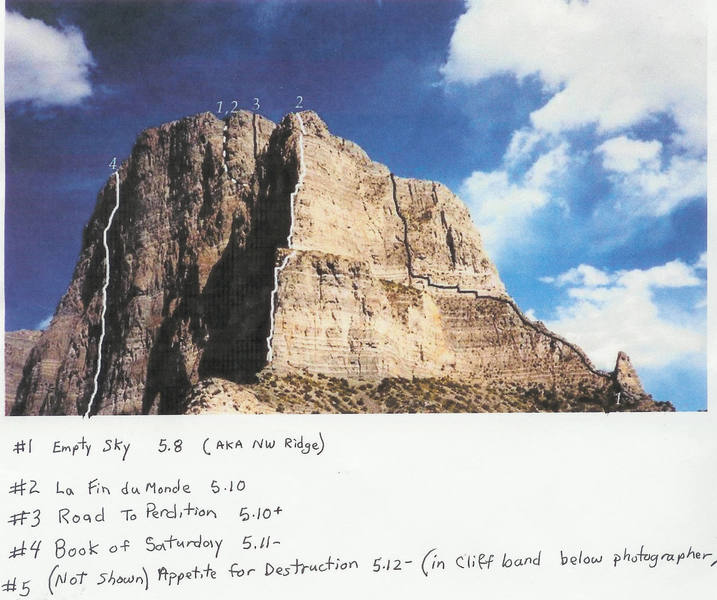 1,2 3 2
4
1
#1 Empty Sky 5.8 (AKA NW Ridge)
#2 La Fin du Monde 5.10
#3 Road To Perdition 5.10+
#4 Book of Saturday 5.11-
#5 (Not Shown) Appetite for Destruction 5.12- (in cliff band below photographer,